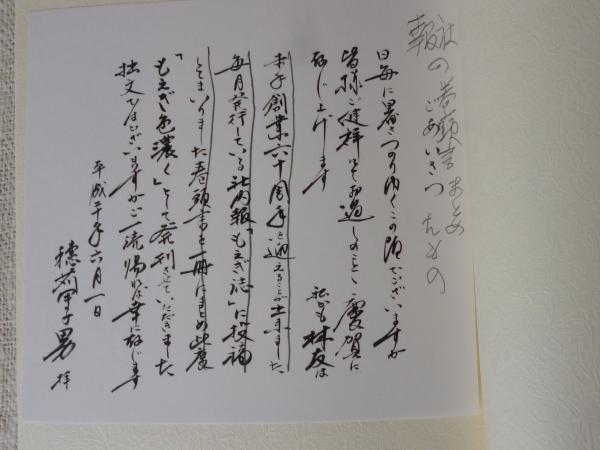 社
報の巻頭言
ごあいさつ
日毎に暑さつのり行くこの頃でございますが
皆様ご健祥にてお過しのことゝ慶賀に
存じ上げます
私ども林友は
本年創業六十周年を迎えることが出来ました
毎月発行している社内報「もえぎ誌」に投稿
してまいりました巻頭言を一冊にまとめ此度
「もえぎ色濃く」として発刊させていただきました
拙文ではございますがご一読賜れば幸に存じます
平成二十年六月一日
男 拝